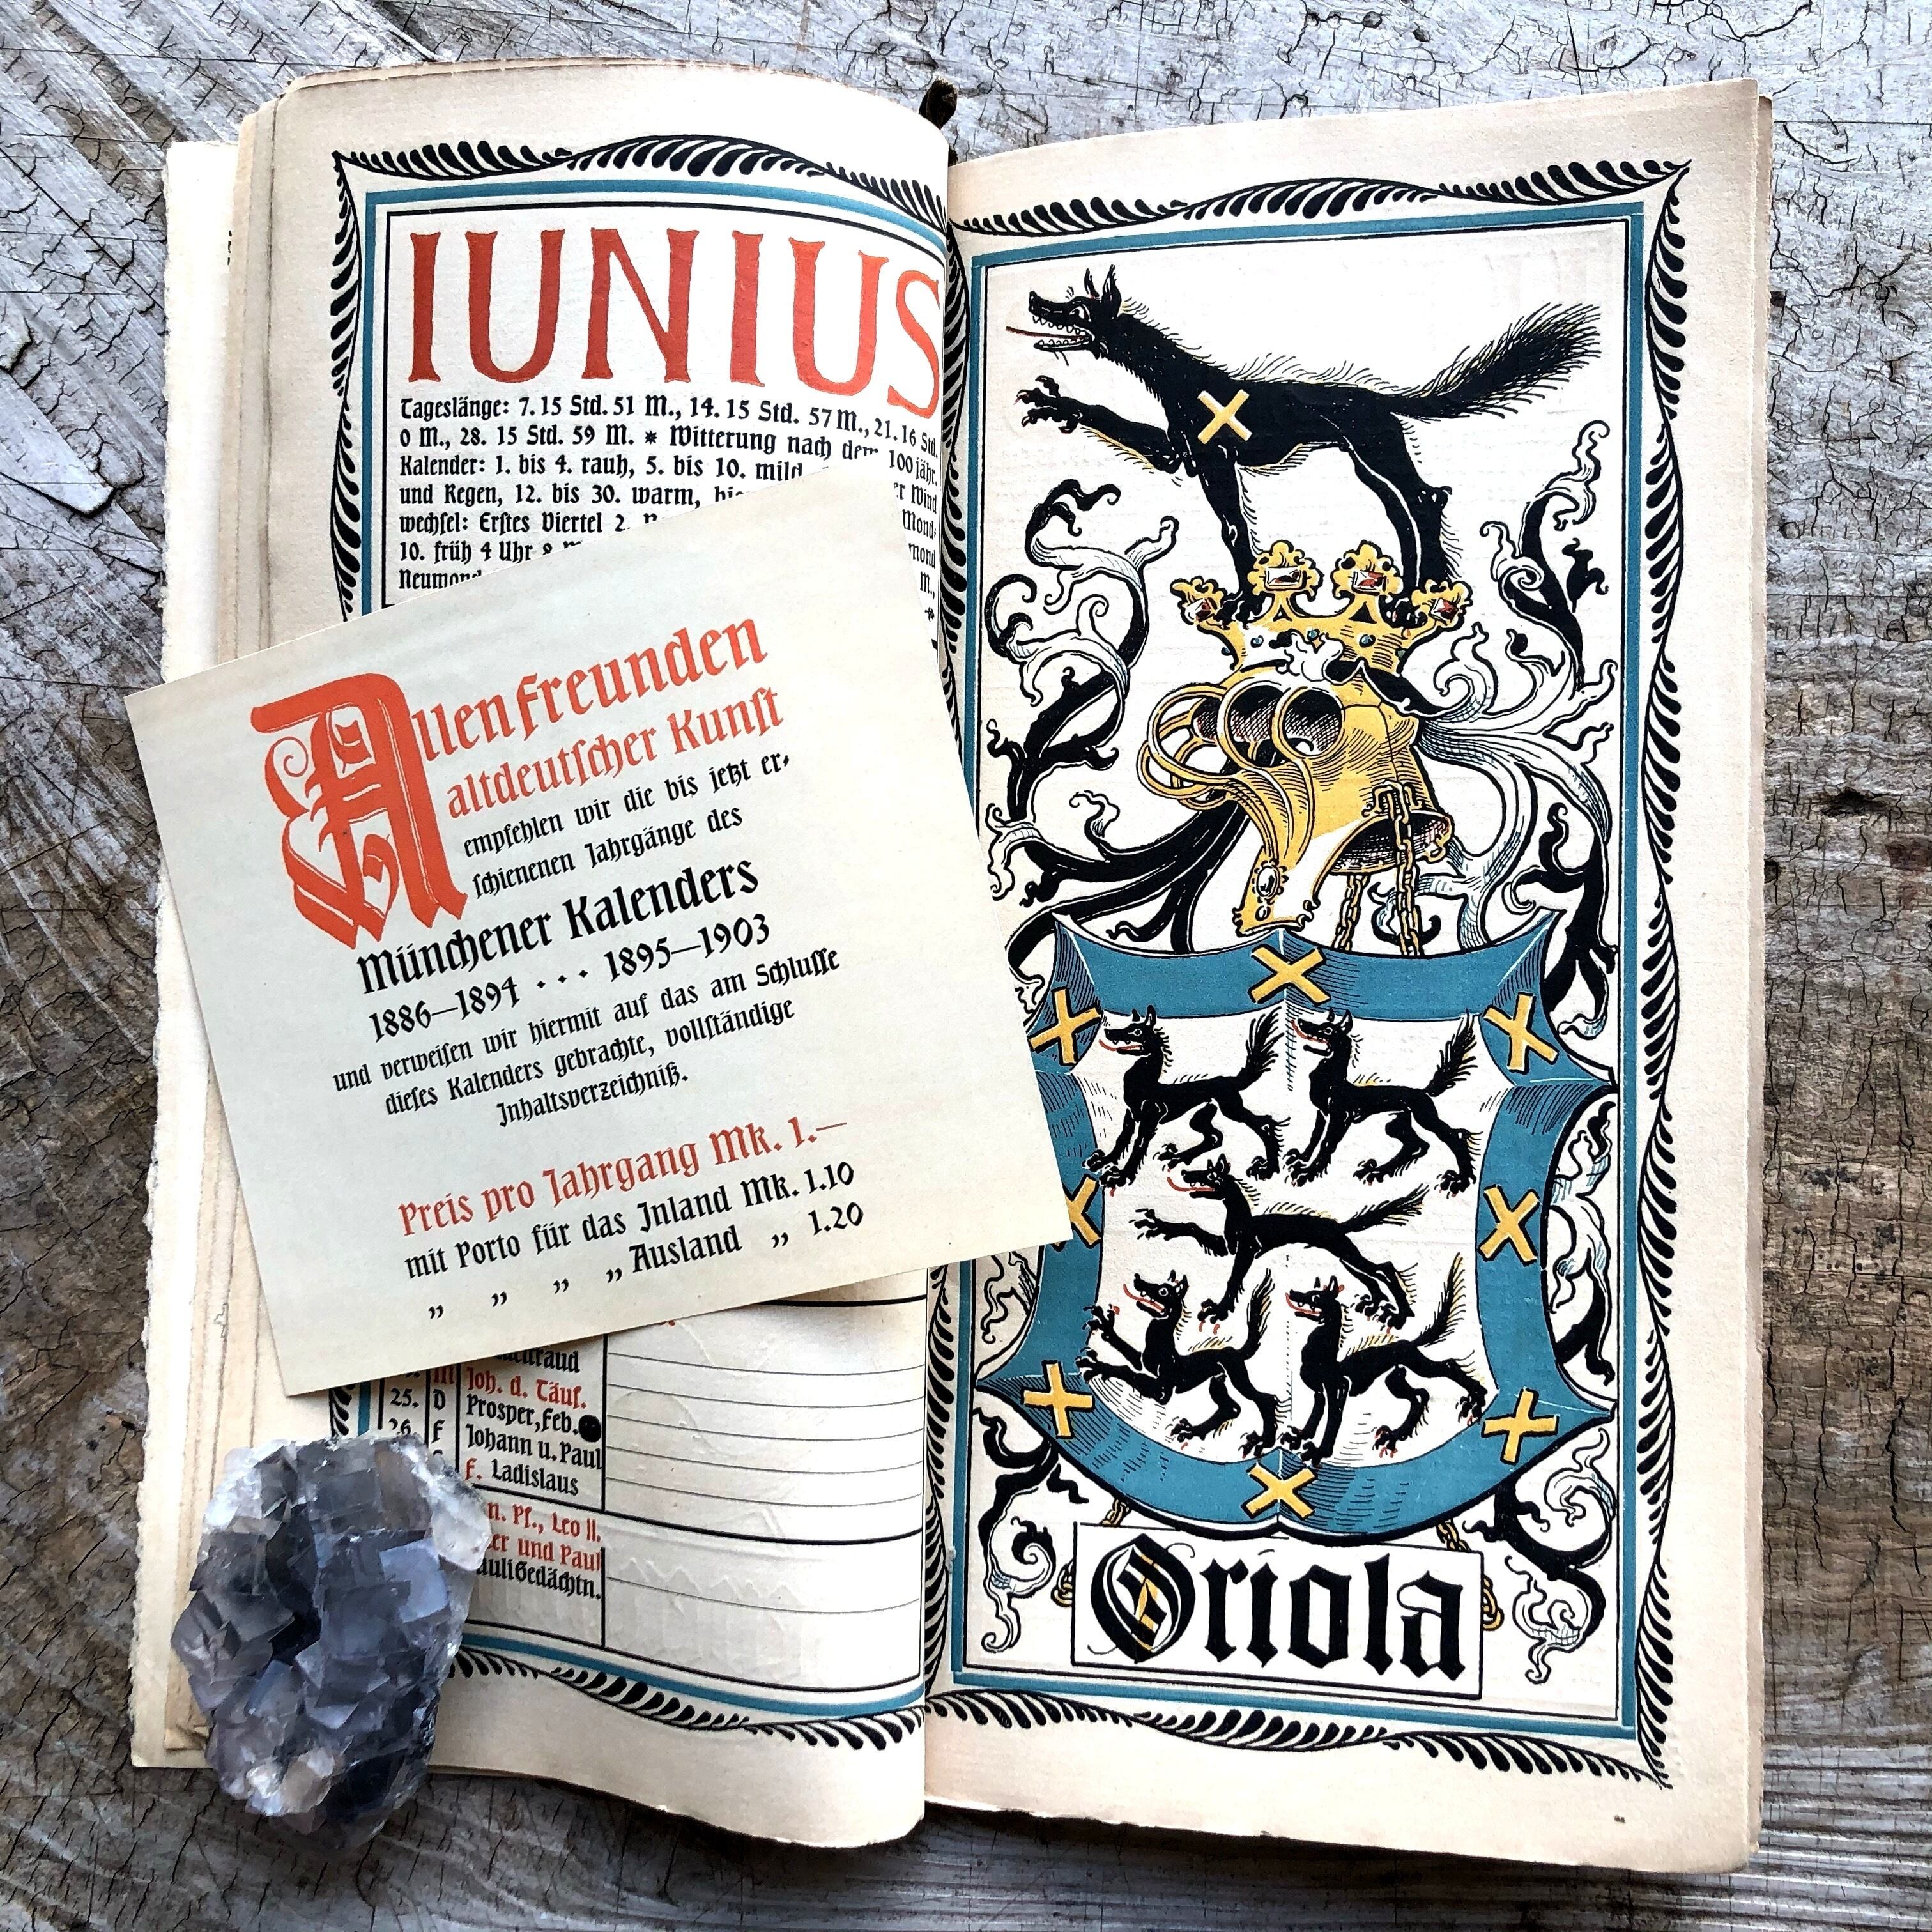 IUNIUS
Tageslänge: 7. 15 Std. 51 M., 14. 15 Std. 57 M., 21. 16 Std.
0 M., 28. 15 Std. 59 M. * Witterung nach dem 100jähr.
Kalender: 1. bis 4. rauh, 5. bis 10. mild
und Regen, 12. bis 30. warm, Wind
wechsel: Erstes Viertel 2. Mond-
10. früh 4 Uhr
Neumond M.,
Allen Freunden
altdeutscher Kunst
empfehlen wir die bis jetzt er-
schienenen Jahrgänge des
Münchener Kalenders
1886—1894 . . . 1895—1903
und verweisen wir hiermit auf das am Schlusse
dieses Kalenders gebrachte, vollständige
Inhaltsverzeichniß.
Preis pro Jahrgang Mk. 1.—
mit Porto für das Inland Mk. 1.10
„ „ „ Ausland „ 1.20
Joh. d. Täuf.
25. D Prosper, Feb.
26. F Johann u. Paul
F. Ladislaus
n. Pf., Leo II.
und Paul
Gedächtn.
Oriola